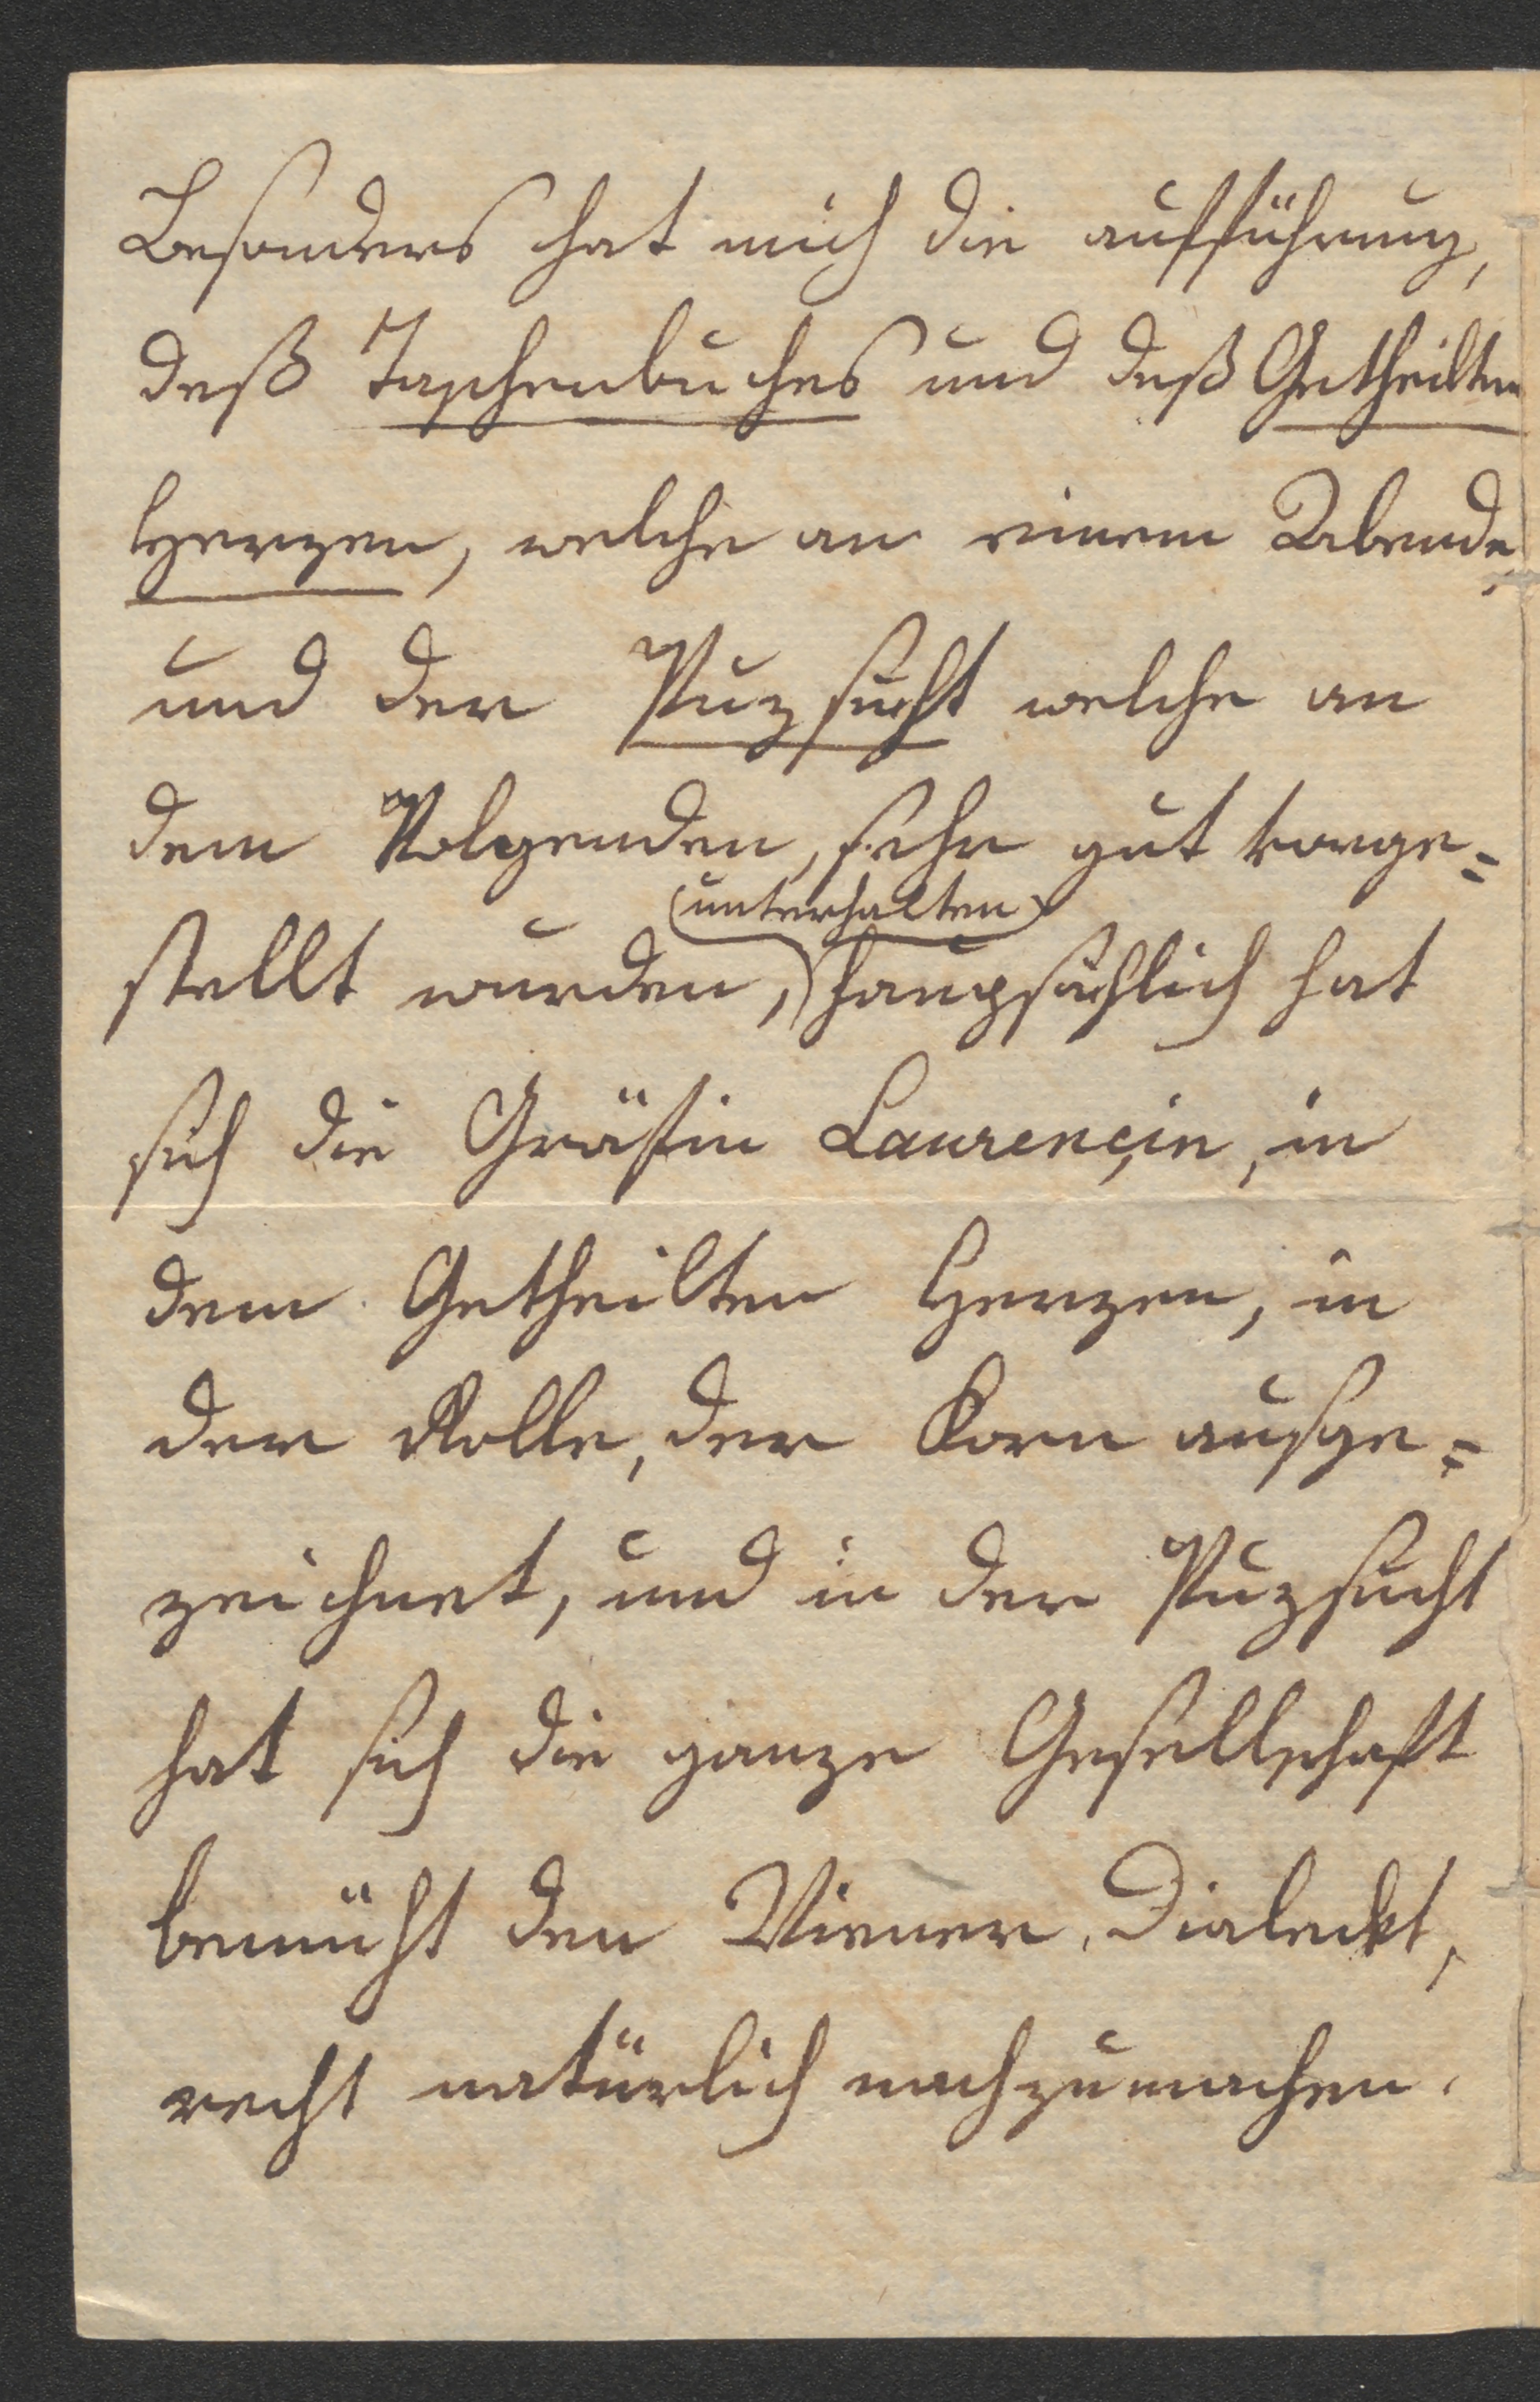 Besonders hat mich die aufführung,
deß Taschenbuches und deß Getheilten
Herzen, welche an einem Abende,
und der Puzsucht welche an
dem Volgenden, sehr gut vorge=
(unterhalten)
stellt wurden, haupsächlich hat
sich die Gräfin Laurençin, in
dem Getheilten Herzen, in
der Rolle, der Korn ausge=
zeichnet, und in der Puzsucht
hat sich die ganze Gesellschaft
bemüht den Wiener Dialeckt,
recht natürlich nachzumachen.